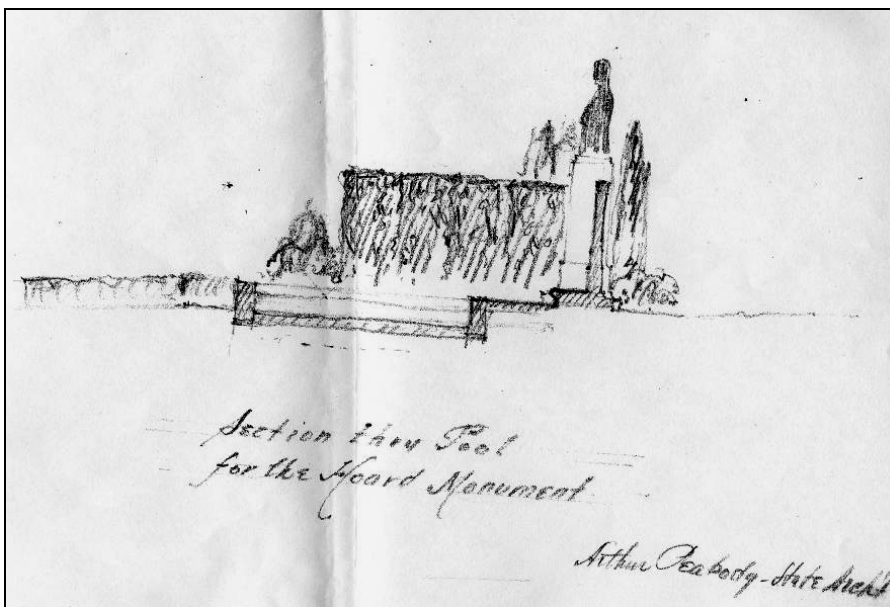 Section thru Pool
for the Hoard Monument
Arthur Peabody - State Archt